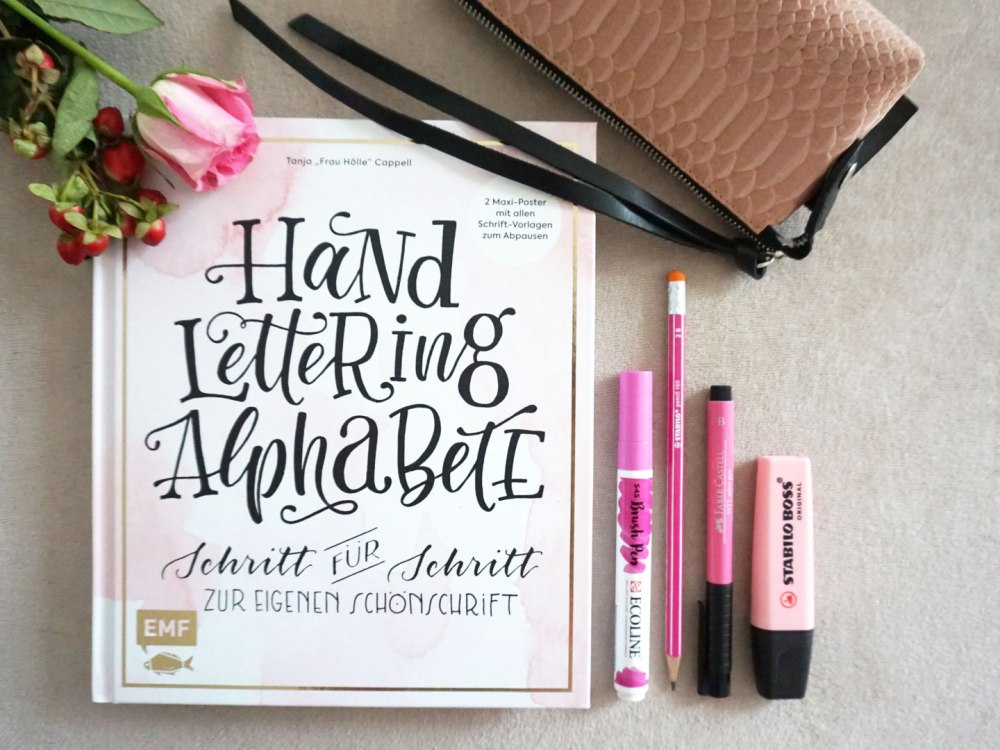 Tanja „Frau Hölle" Cappell
2 Maxi-Poster
mit allen
Schrift-Vorlagen
zum Abpausen
Hand
Lettering
Alphabete
Schritt FÜR Schritt
ZUR EIGENEN SCHÖNSCHRIFT
EMF
545 Brush Pen
ECOLINE
STABILO pencil 160
2B
B
FABER-CASTELL
STABILO BOSS
ORIGINAL